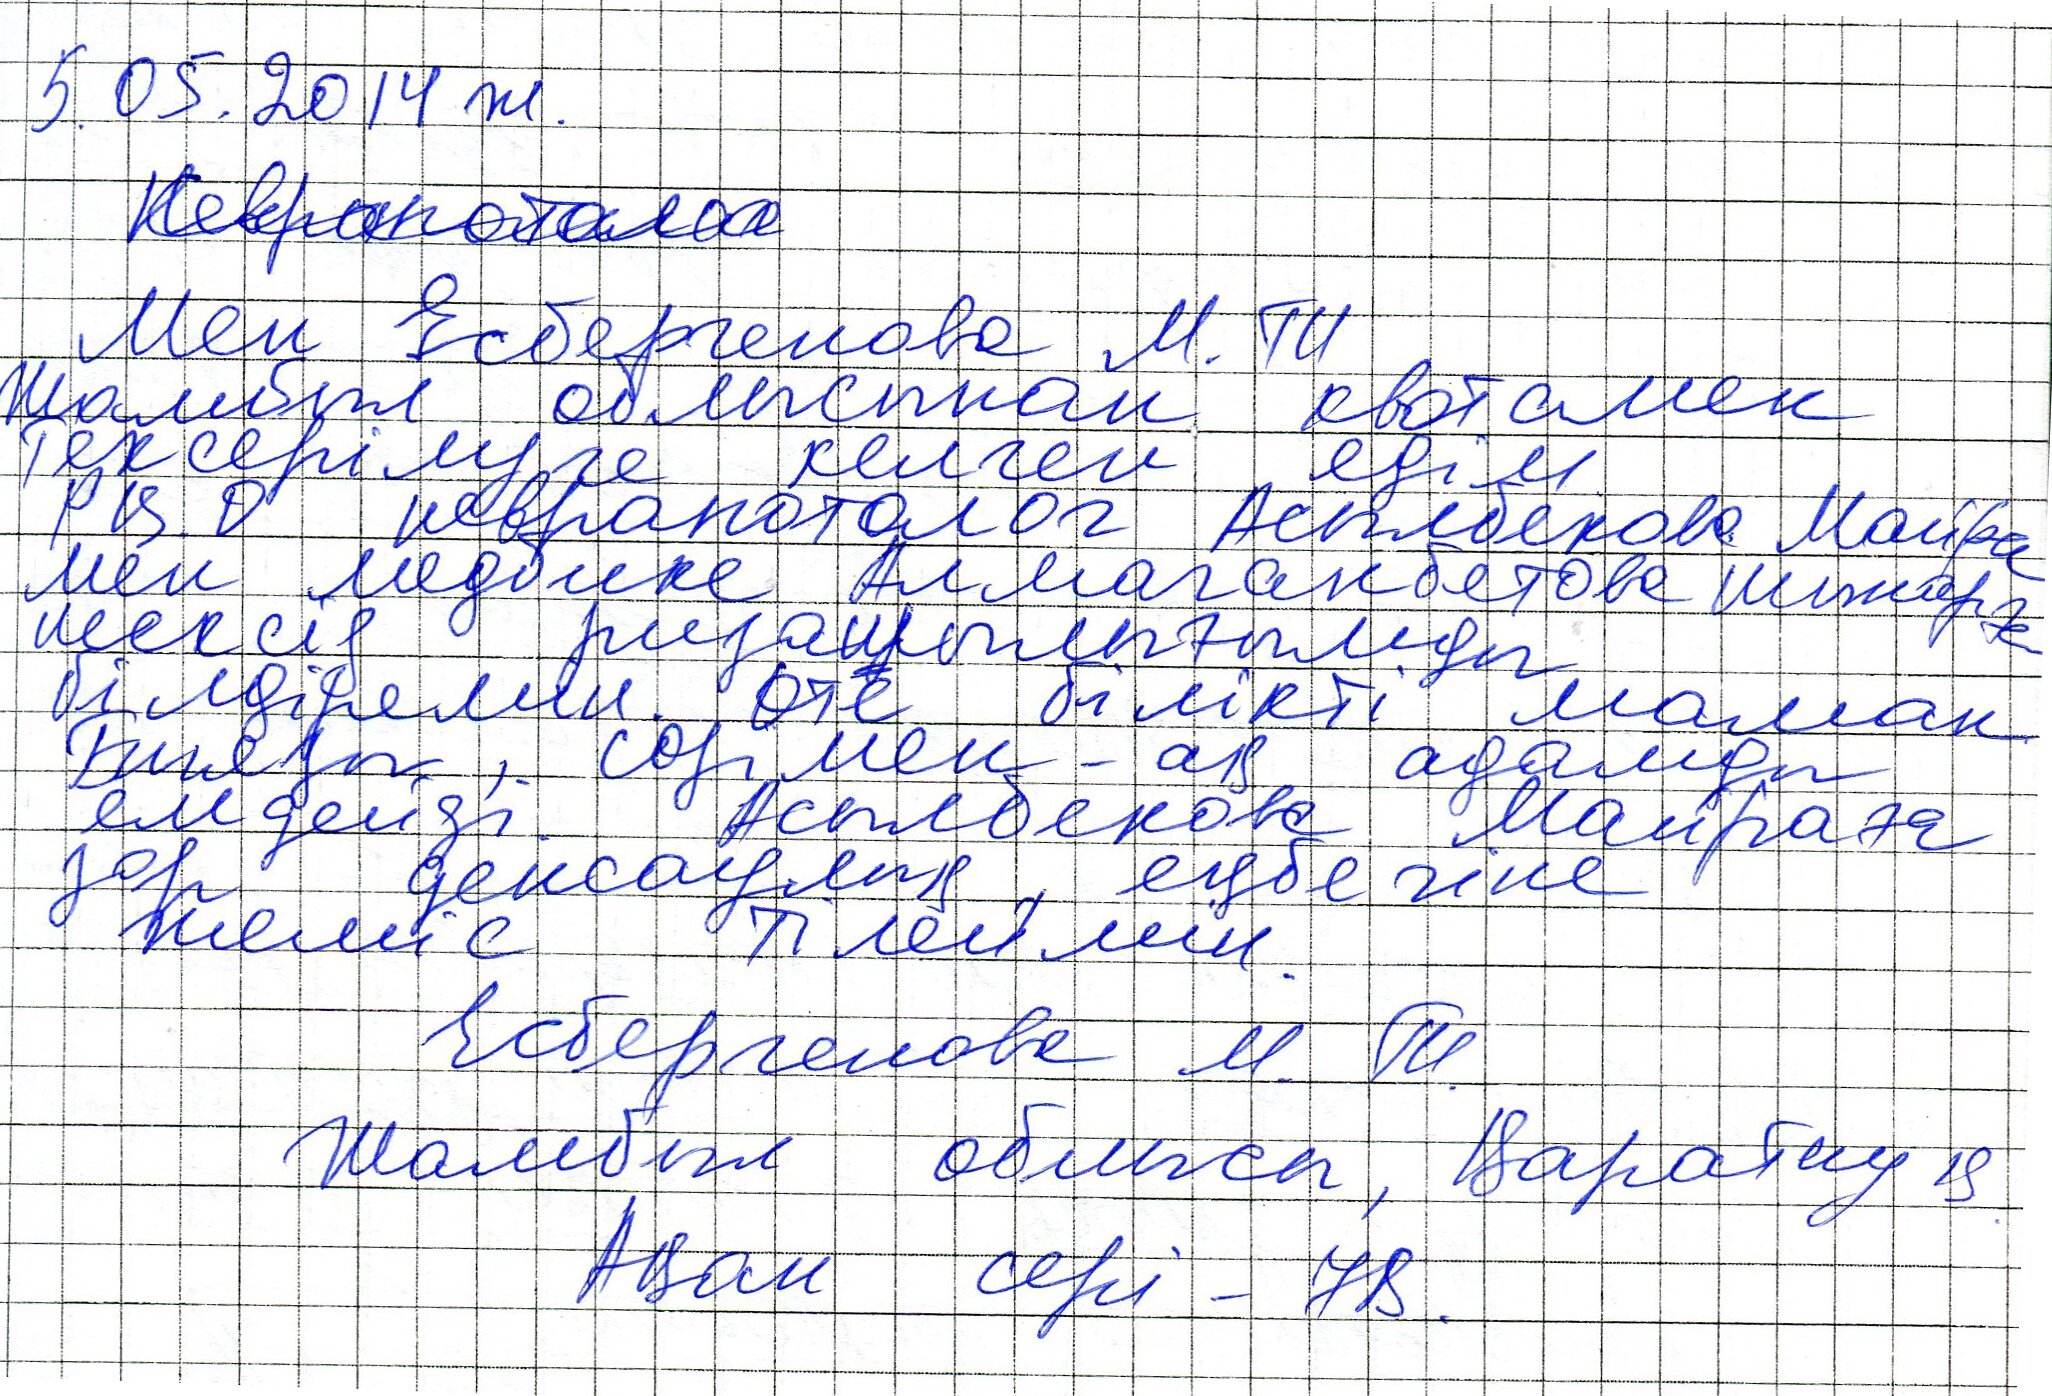 5.05.2014 ж.
Невропотолог
Мен Есбергенова М. Ш
Жамбыл облысынан квотамен
тексерілуге келген едім
РҚО невропотолог Асылбекова Майра
мен медбике Алмаганбетова Шынарға
шексіз ризашылығымды
білдіремін. Өте білікті маман
екен, сөзімен-ақ адамды
емдейді. Асылбекова Майраға
зор денсаулық, еңбегіне
жеміс тілеймін.
Есбергенова М. Ш.
Жамбыл облысы, Қаратау қ.
Ақан сері - 7В.